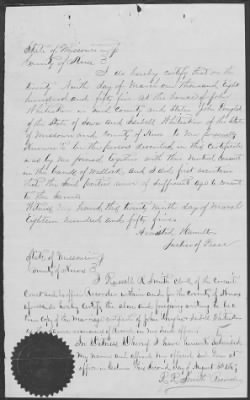 State of Missouri
County of Knox
I do hereby certify that on the
twenty Ninth day of March one thousand eight
hundred and fifty five at the house of John
Whitaker in said County and State John
of the State of Iowa and Whitaker of the State
of Missouri and County of Knox to me personally
known to be the persons described in this certificate
was by me joined together with their mutual consent
in the Bands of Wedlock, and I first ascertain
that the said parties were of sufficient age to consent
to the same.
Witness my hand this twenty ninth day of March
Eighteen hundred and fifty five
Hamilton
Justice of Peace
State of Missouri
County of Knox
I Russell R Smith clerk of the Circuit
Court and ex officio Recorder within and for the County of Knox
aforesaid hereby certify the above and foregoing writing to be a
true copy of the marriage certificate of John
Whitaker as the same remains of Record in my said office
In Witness Whereof I have hereunto subscribed
my name and affixed my official seal Done at
office in this second day of August
R. R. Smith Recorder